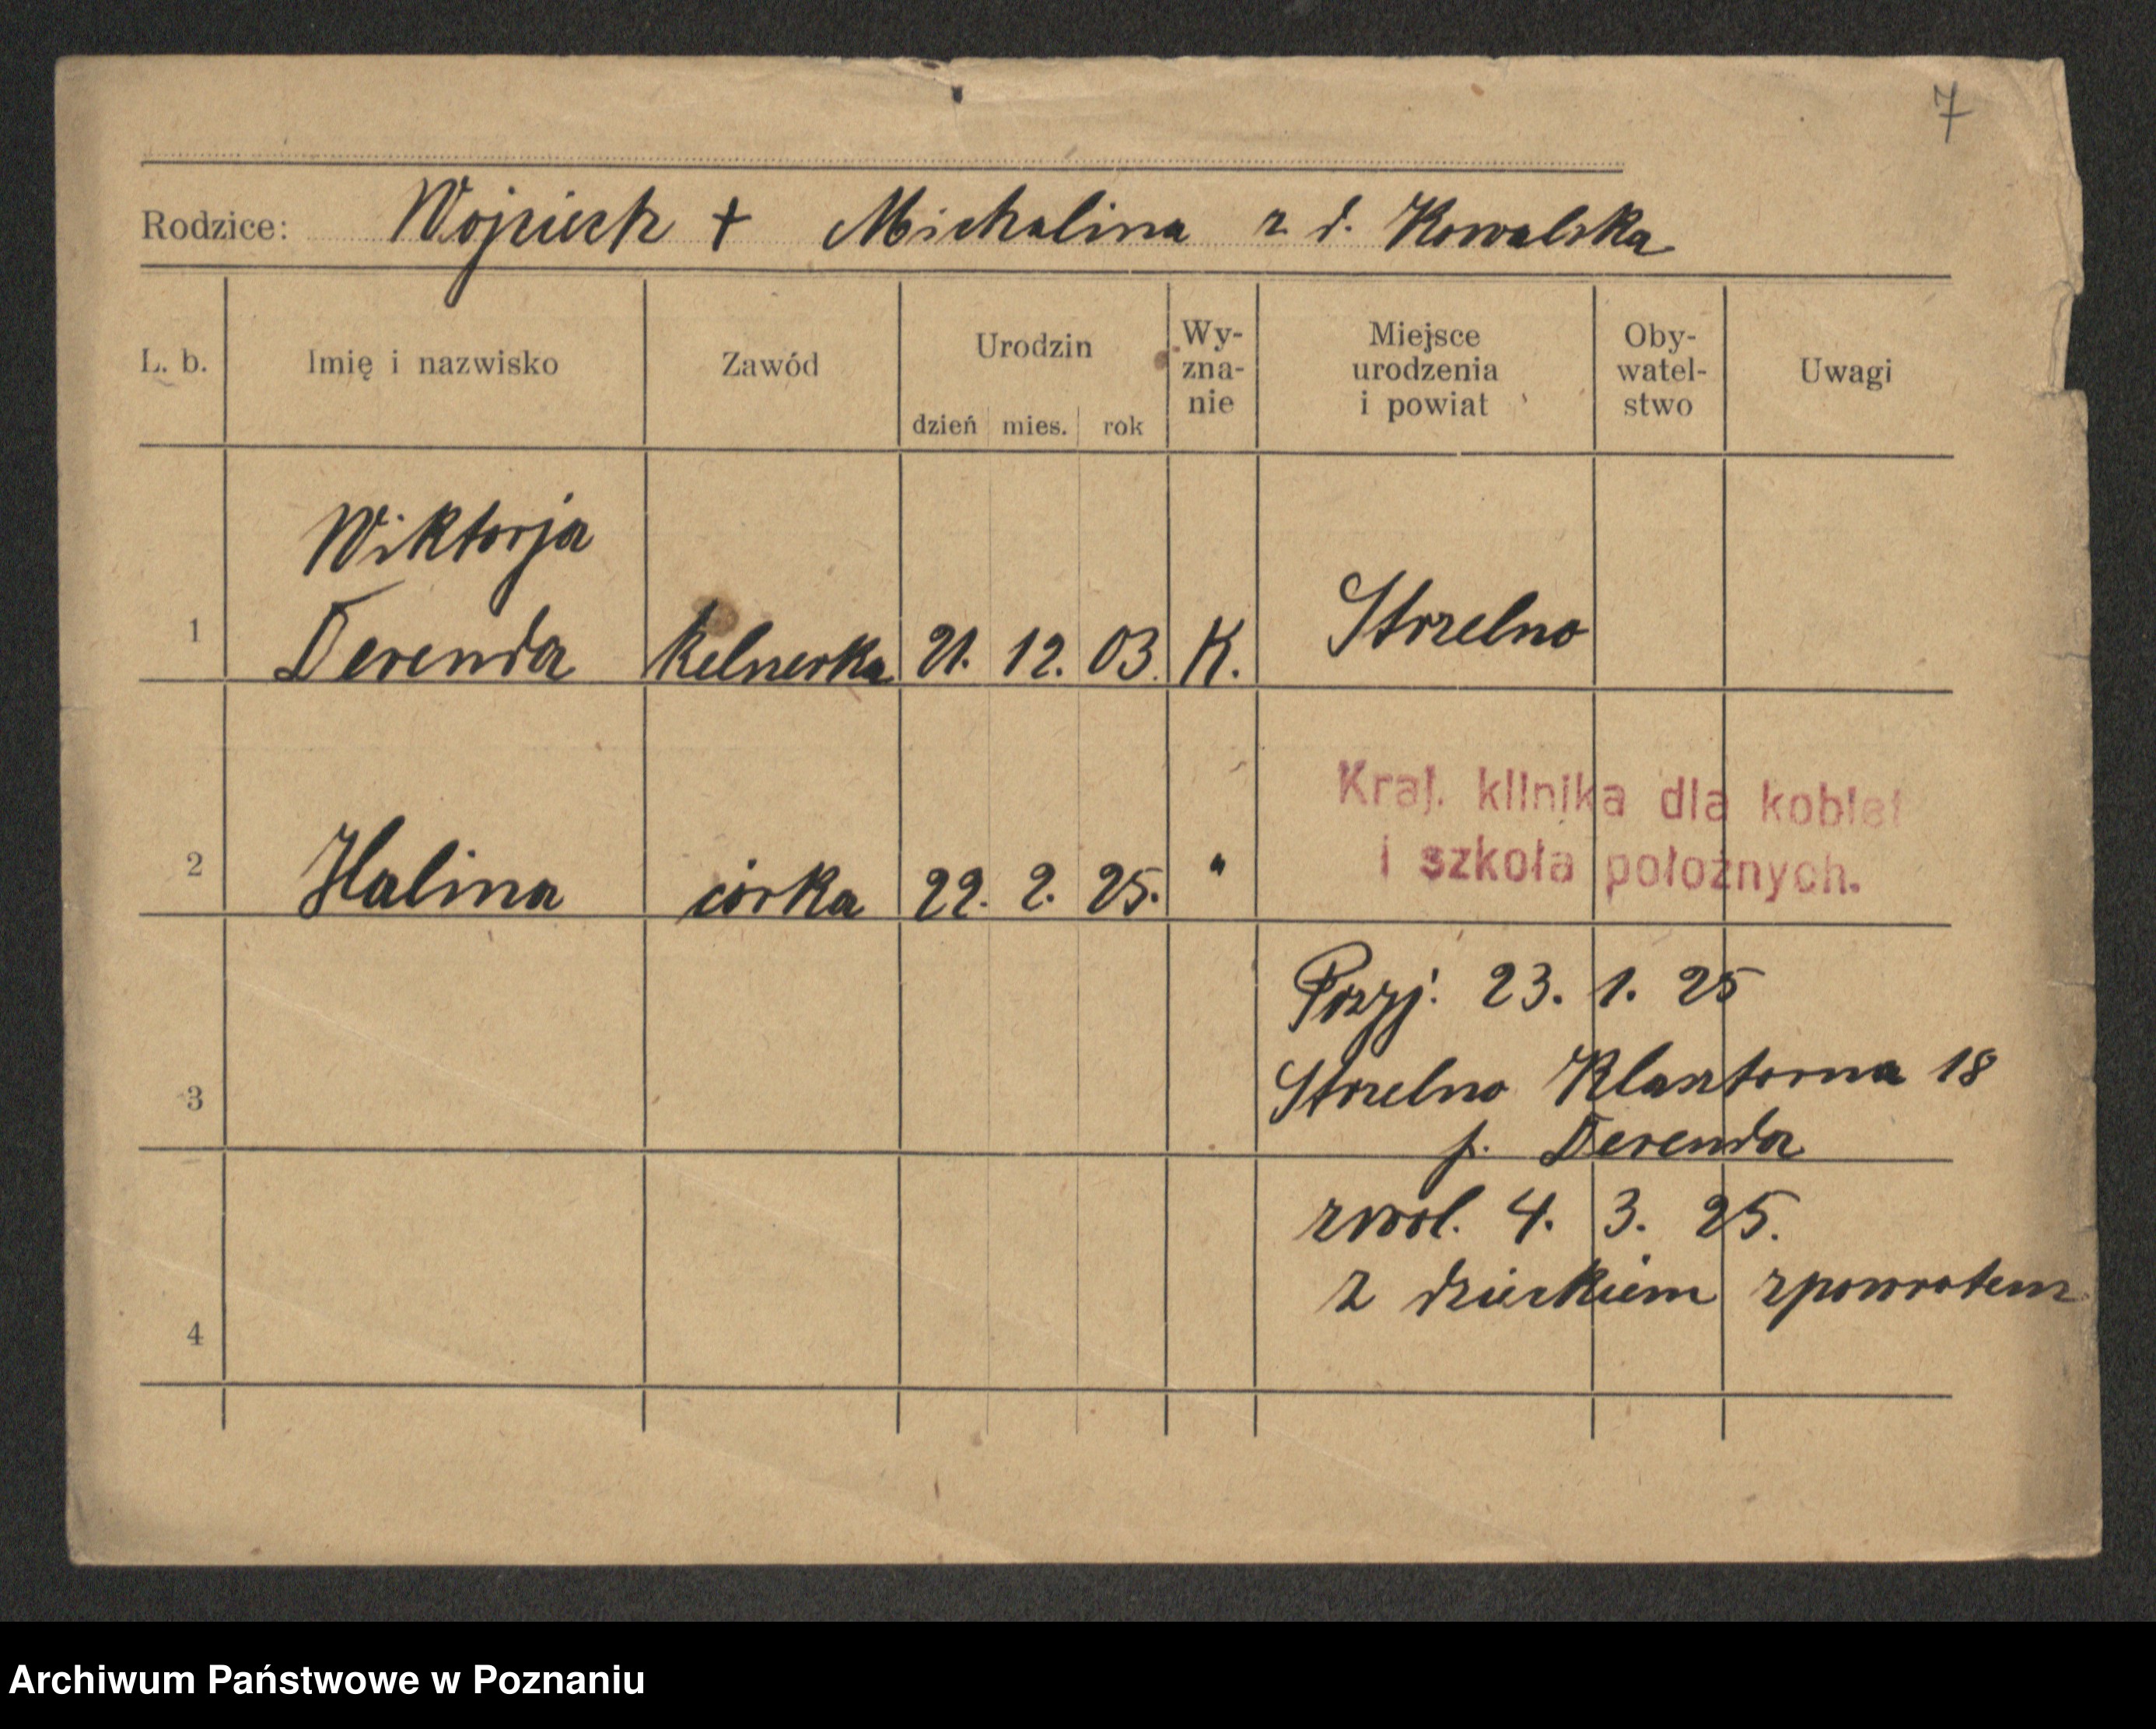 7
Rodzice: Wojciech + Michalina z d. Kowalska
L. b. Imię i nazwisko Zawód Urodzin dzień mies. rok Wy-zna-nie Miejsce urodzenia i powiat Oby-watel-stwo Uwagi
Wiktorja
1 Derenda kelnerka 21. 12. 03. K. Strzelno
Kraj. klinika dla kobiet
i szkoła położnych.
2 Halina córka 22. 2. 25. "
Przyj. 23. 1. 25
3 Strzelno Klasztorna 18
p. Derenda
zwol. 4. 3. 25.
z dzieckiem zpowrotem
4
Archiwum Państwowe w Poznaniu